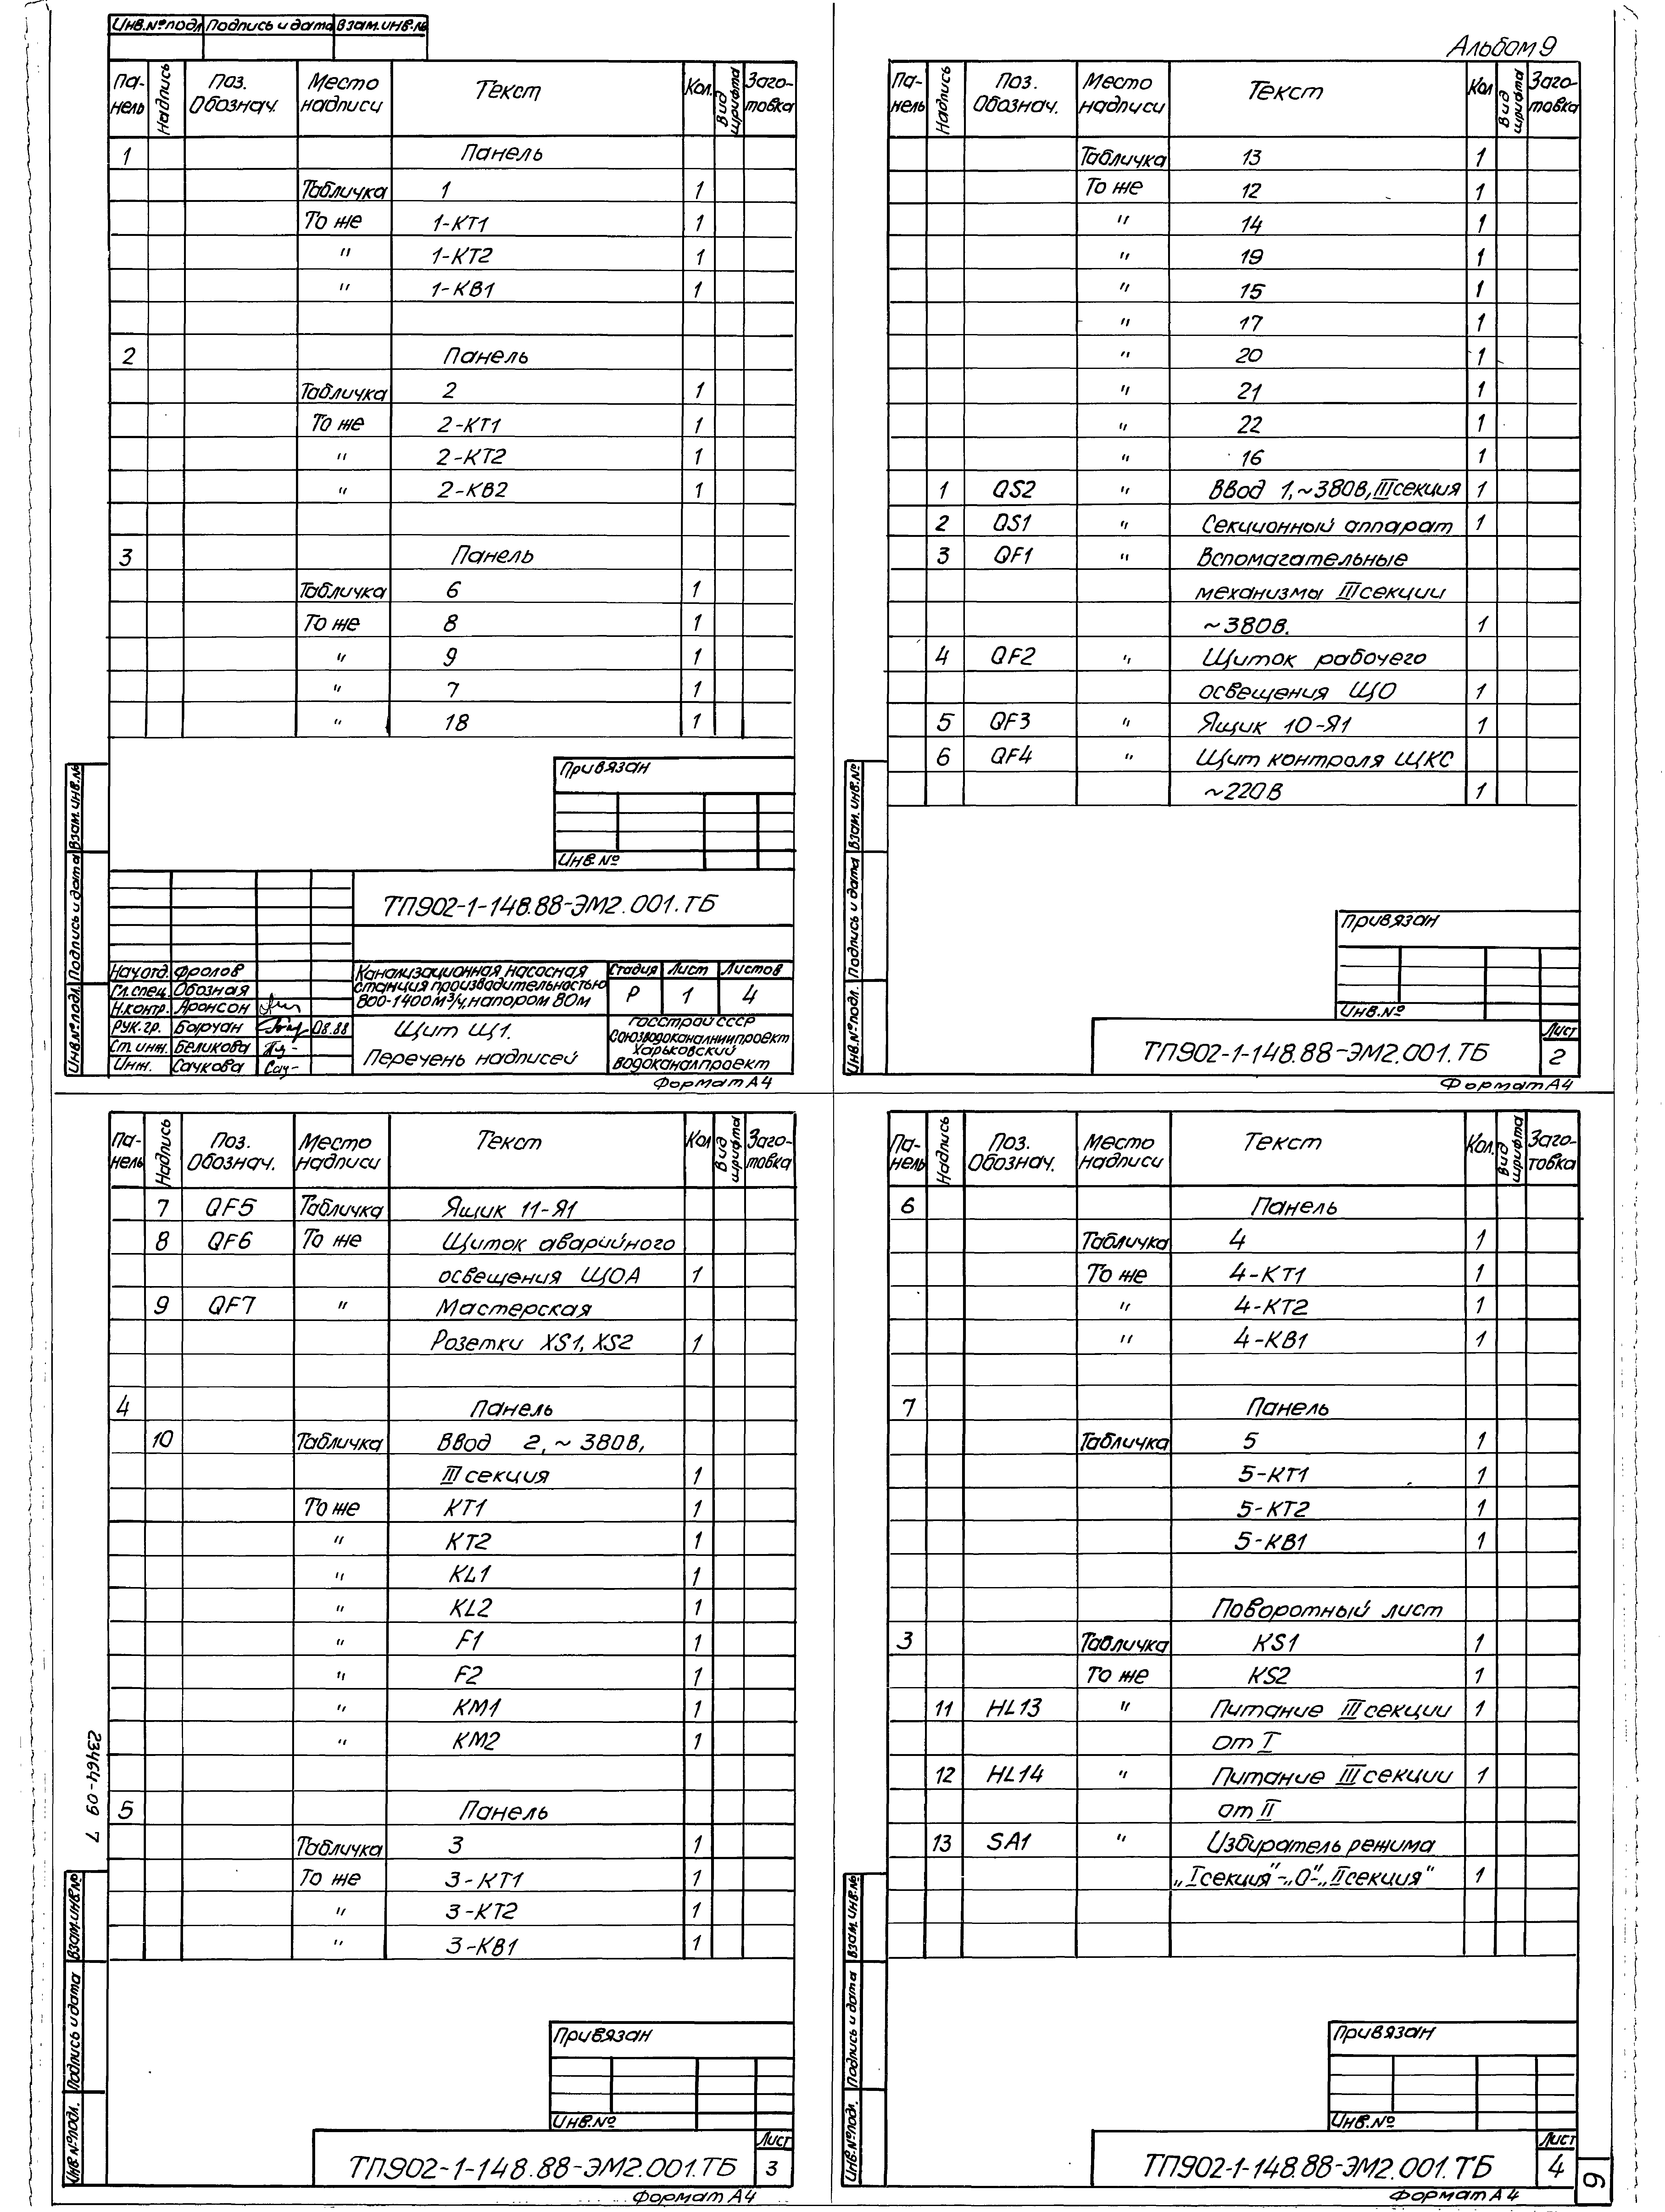 Инв.№подл Подпись и дата Взам.инв.№
Па-нель Надпись Поз. Обознач. Место надписи Текст Кол. Вид шрифта Заго-товка
1 Панель
Табличка 1 1
То же 1-КТ1 1
" 1-КТ2 1
" 1-КВ1 1
2 Панель
Табличка 2 1
То же 2-КТ1 1
" 2-КТ2 1
" 2-КВ2 1
3 Панель
Табличка 6 1
То же 8 1
" 9 1
" 7 1
" 18 1
Привязан
Инв.№
ТП902-1-148.88-ЭМ2.001.ТБ
Нач.отд. Фролов
Гл.спец. Обозная
Н.контр. Аронсон
Рук.гр. Барчан 08.88
Ст.инж. Беликова
Инж. Сачкова
Канализационная насосная
станция производительностью
800-1400м³/ч, напором 80м
Стадия Лист Листов
Р 1 4
Щит Щ1.
Перечень надписей
Госстрой СССР
Союзводоканалниипроект
Харьковский
Водоканалпроект
Формат А4
Инв.№подл. Подпись и дата Взам.инв.№
Альбом 9
Па-нель Надпись Поз. Обознач. Место надписи Текст Кол Вид шрифта Заго-товка
Табличка 13 1
То же 12 1
" 14 1
" 19 1
" 15 1
" 17 1
" 20 1
" 21 1
" 22 1
" 16 1
1 QS2 " Ввод 1,~380В, III секция 1
2 QS1 " Секционный аппарат 1
3 QF1 " Вспомагательные
механизмы III секции
~380В. 1
4 QF2 " Щиток рабочего
освещения ЩО 1
5 QF3 " Ящик 10-Я1 1
6 QF4 " Щит контроля ЩКС
~220В 1
Привязан
Инв.№
ТП902-1-148.88-ЭМ2.001.ТБ
Лист
2
Формат А4
Инв.№подл. Подпись и дата Взам.инв.№
Па-нель Надпись Поз. Обознач. Место надписи Текст Кол Вид шрифта Заго-товка
7 QF5 Табличка Ящик 11-Я1
8 QF6 То же Щиток аварийного
освещения ЩОА 1
9 QF7 " Мастерская
Розетки XS1, XS2 1
4 Панель
10 Табличка Ввод 2,~380В,
III секция 1
То же КТ1 1
" КТ2 1
" KL1 1
" KL2 1
" F1 1
" F2 1
" КМ1 1
" КМ2 1
5 Панель
Табличка 3 1
То же 3-КТ1 1
" 3-КТ2 1
" 3-КВ1 1
23464-09 7
Привязан
Инв.№
ТП902-1-148.88-ЭМ2.001.ТБ
Лист
3
Формат А4
Инв.№подл. Подпись и дата Взам.инв.№
Па-нель Надпись Поз. Обознач. Место надписи Текст Кол. Вид шрифта Заго-товка
6 Панель
Табличка 4 1
То же 4-КТ1 1
" 4-КТ2 1
" 4-КВ1 1
7 Панель
Табличка 5 1
5-КТ1 1
5-КТ2 1
5-КВ1 1
Поворотный лист
3 Табличка KS1 1
То же KS2 1
11 HL13 " Питание III секции 1
от I
12 HL14 " Питание III секции 1
от II
13 SA1 " Избиратель режима
„I секция"-„0"-„II секция" 1
Привязан
Инв.№
ТП902-1-148.88-ЭМ2.001.ТБ
Лист
4
Формат А4
Инв.№подл. Подпись и дата Взам.инв.№
6